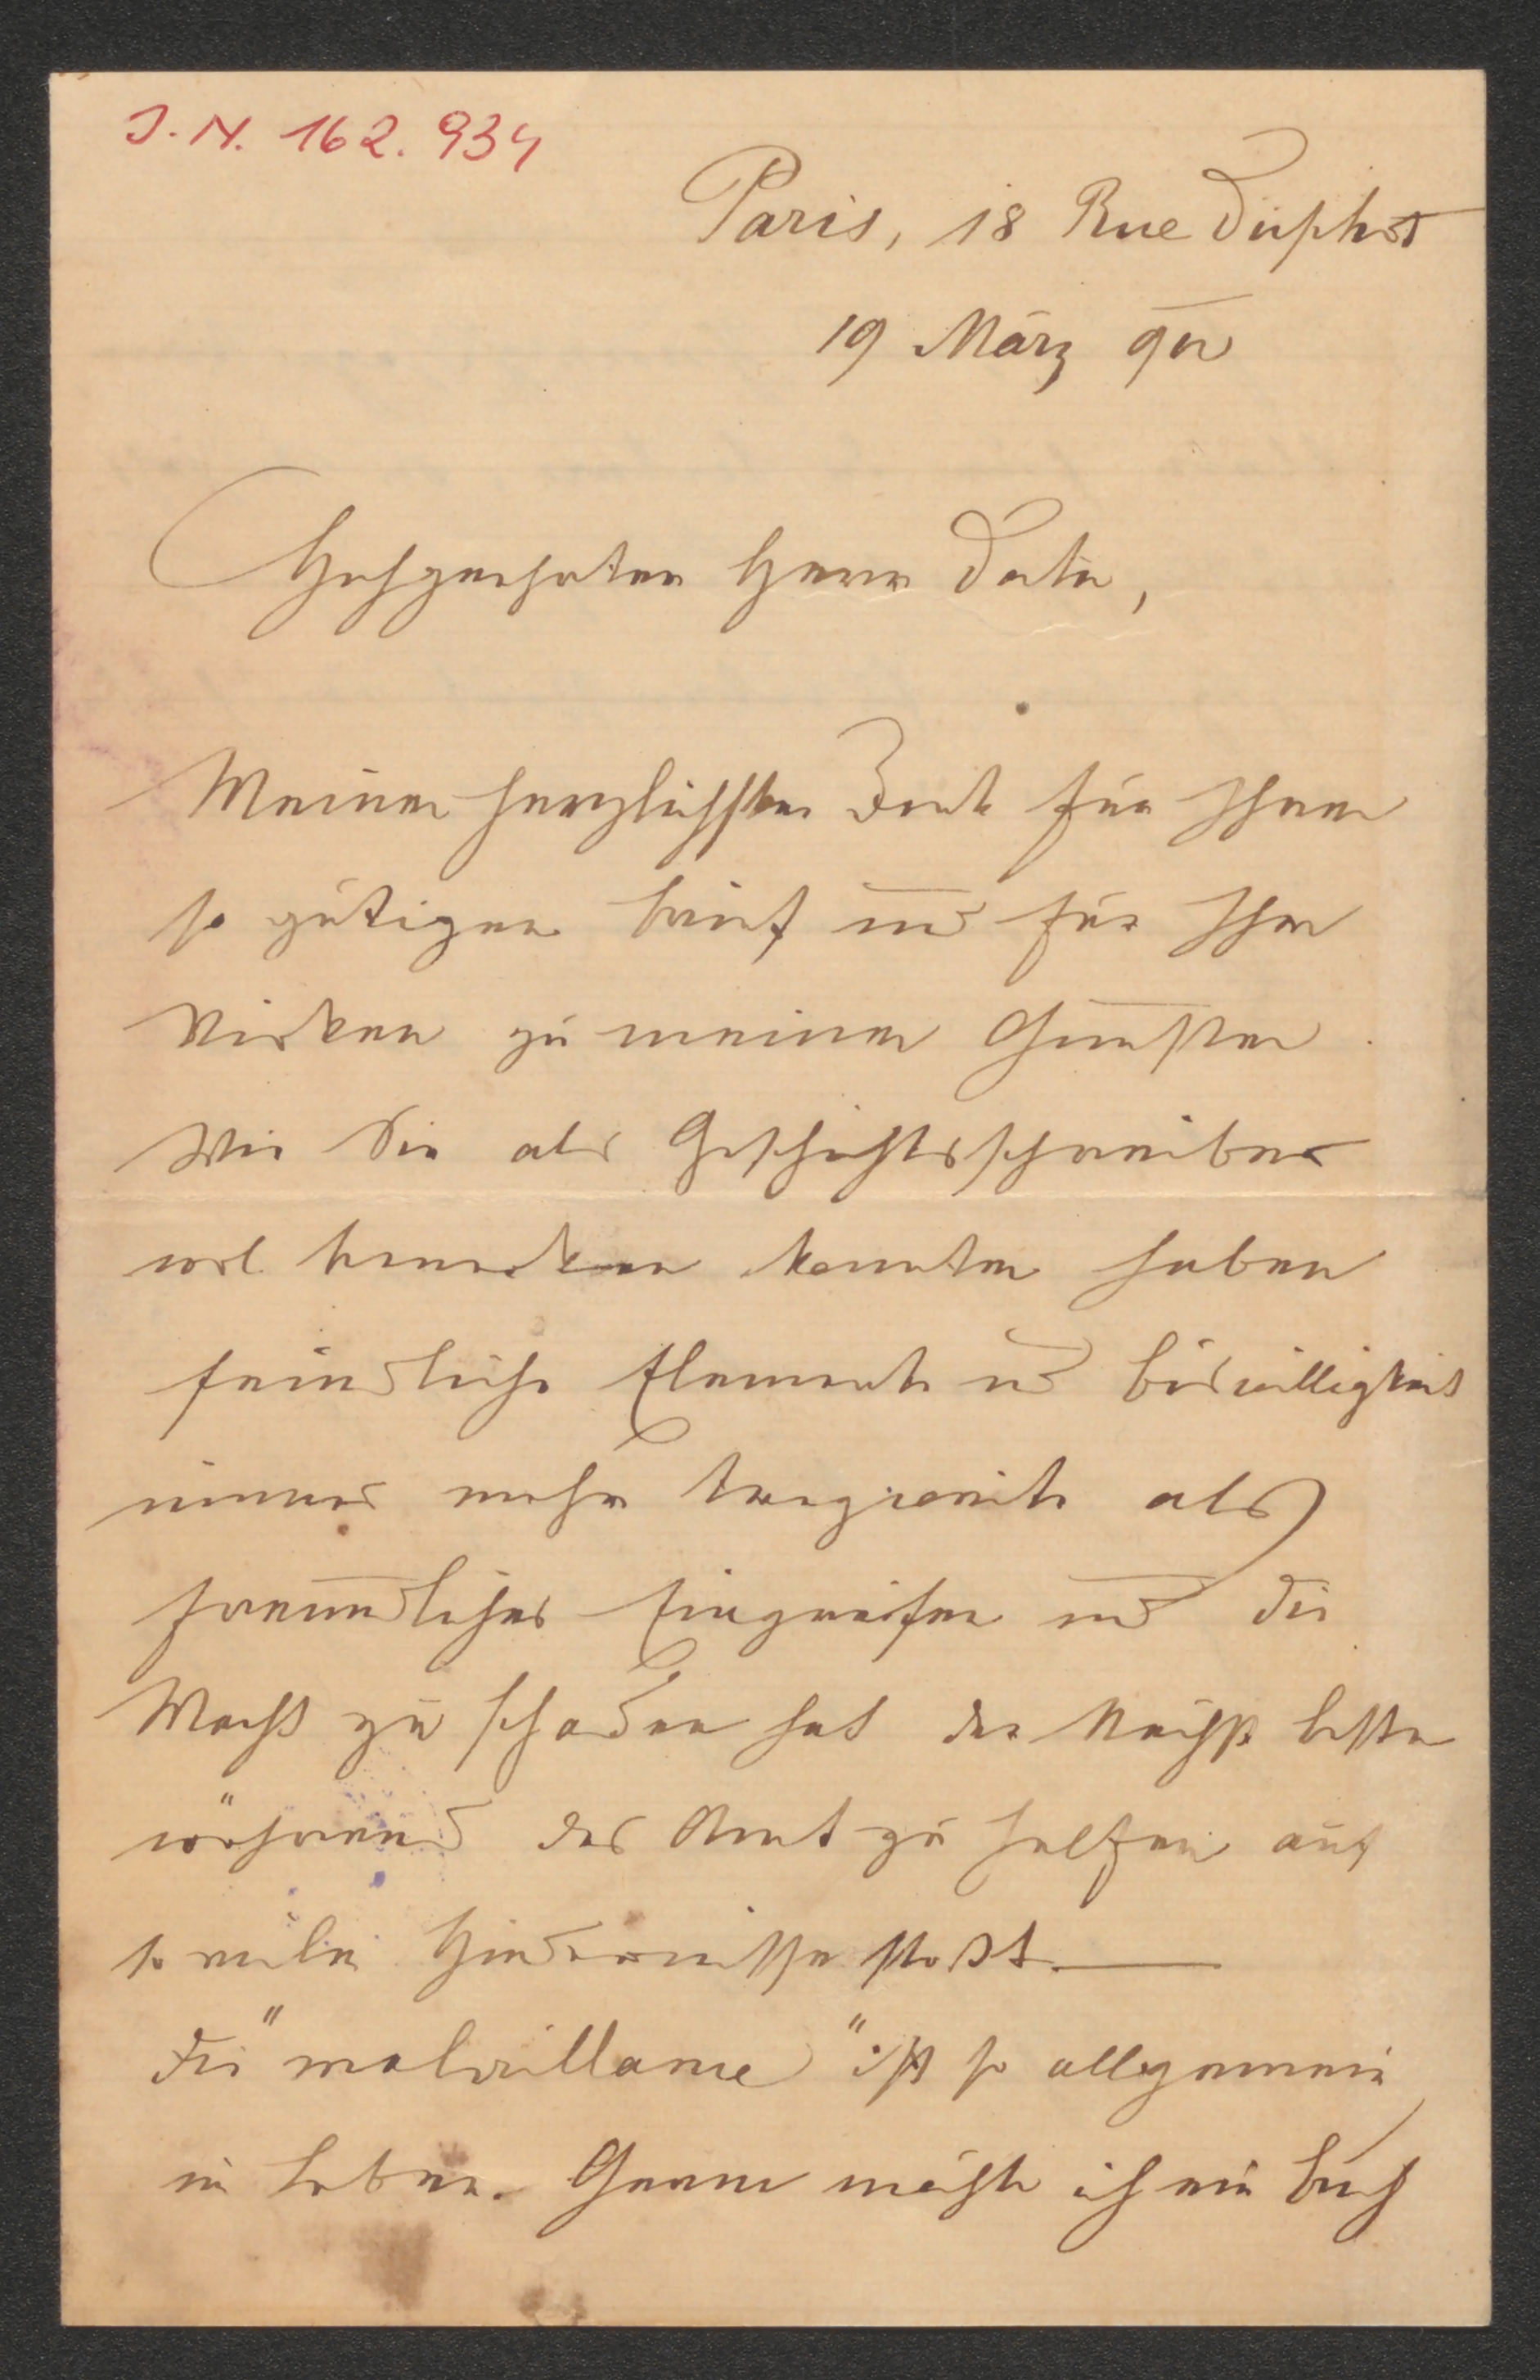 J.N. 162.934
Paris, 18 Rue Duphot
19 März 90
Hochgeehrter Herr
Meinen herzlichsten Dank für Ihren
so gütigen Brief und für Ihr
Wirken zu meinen Gunsten.
Wie Sie als Geschichtsschreiber
wol bemerken konnten haben
feindliche Elemente u Böswilligkeit
immer mehr als
freundliches Eingreifen und die
Macht zu schaden hat der Nächst beste
während das Amt zu helfen auf
so viele Hindernisse stoßt.
Die "malveillance" ist so allgemein
im Leben. Gerne möchte ich ein Buch